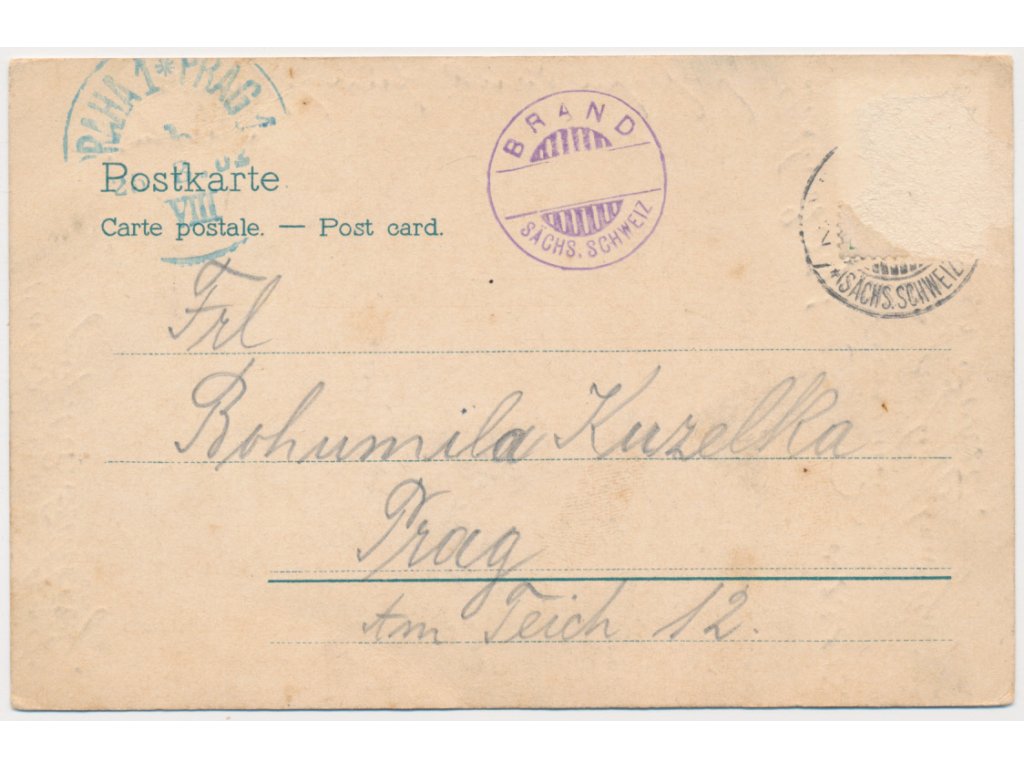 PRAHA 1 * PRAG 1
VIII
BRAND
SÄCHS. SCHWEIZ
*(SÄCHS. SCHWEIZ)
Postkarte
Carte postale. — Post card.
Frl
Bohumila Kuzelka
Prag
Am Teich 12.